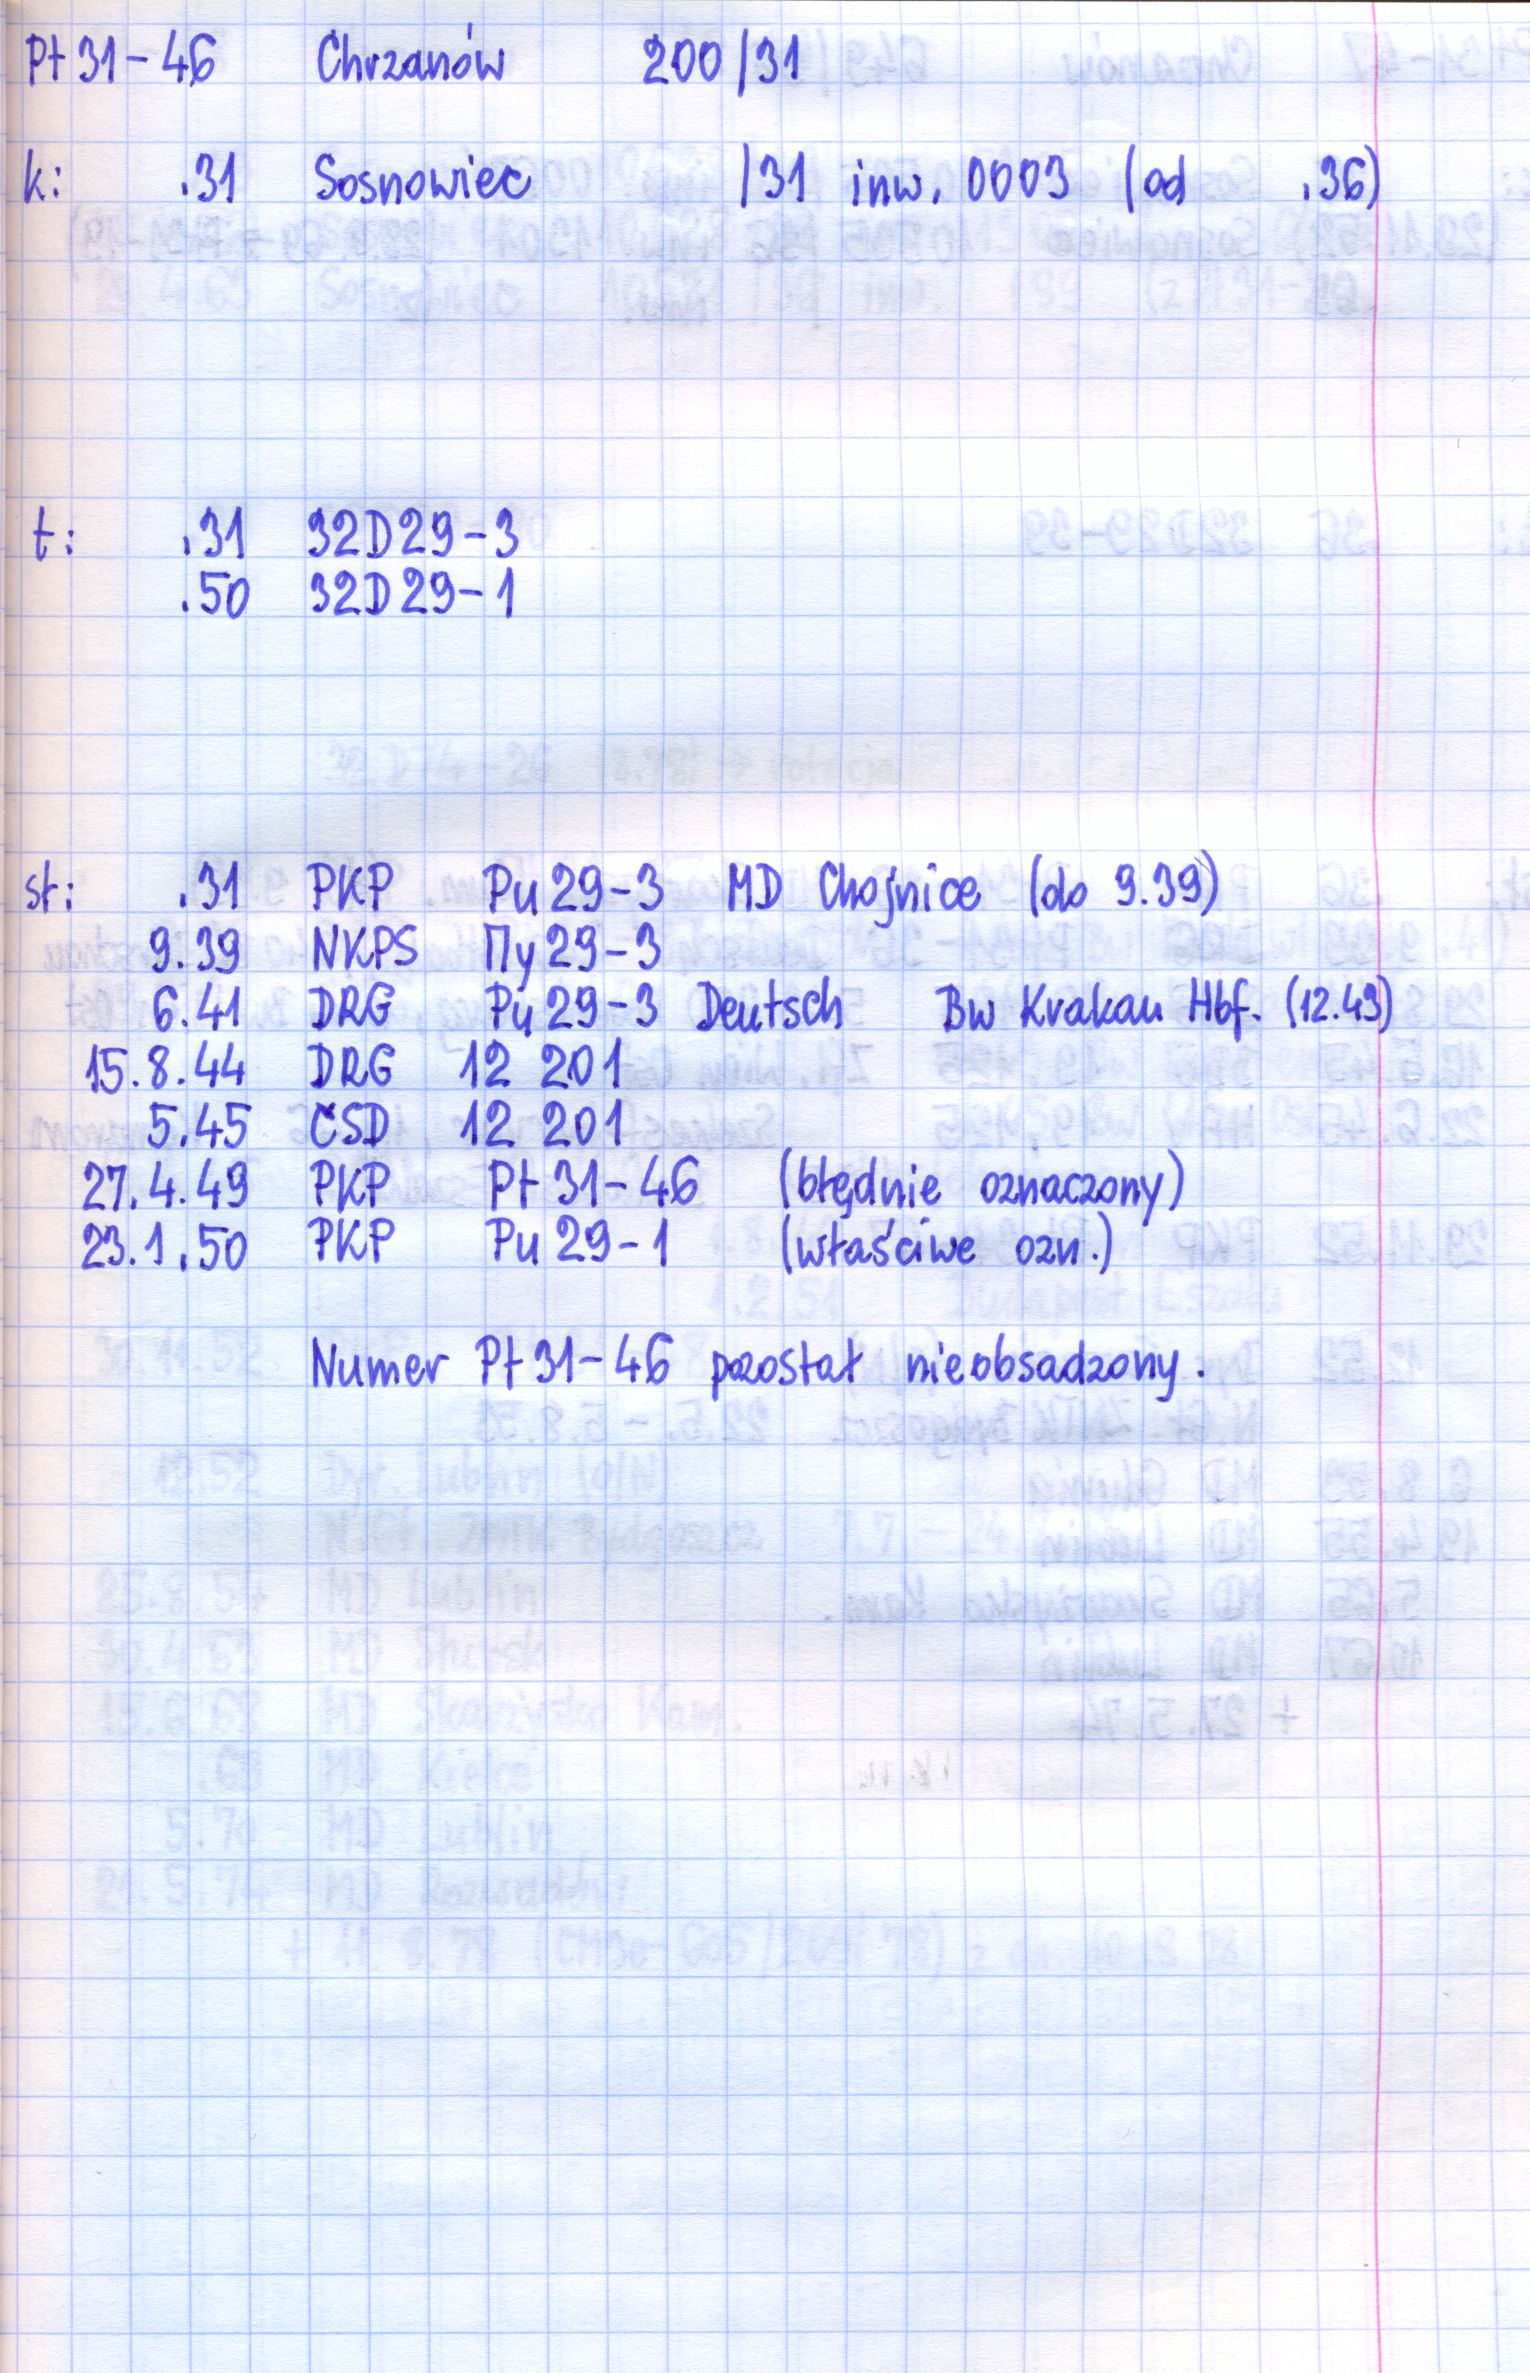 Pt 31-46 Chrzanów 200/31
k: .31 Sosnowiec /31 inw. 0003 (od .36)
t: .31 32D29-3
.50 32D29-1
st: .31 PKP Pu 29-3 MD Chojnice (do 9.39)
9.39 NKPS Пу 29-3
6.41 DRG Pu 29-3 Deutsch Bw Krakau Hbf. (12.43)
15.8.44 DRG 12 201
5.45 ČSD 12 201
27.4.49 PKP Pt 31-46 (błędnie oznaczony)
23.1.50 PKP Pu 29-1 (właściwe ozn.)
Numer Pt 31-46 pozostał nieobsadzony.